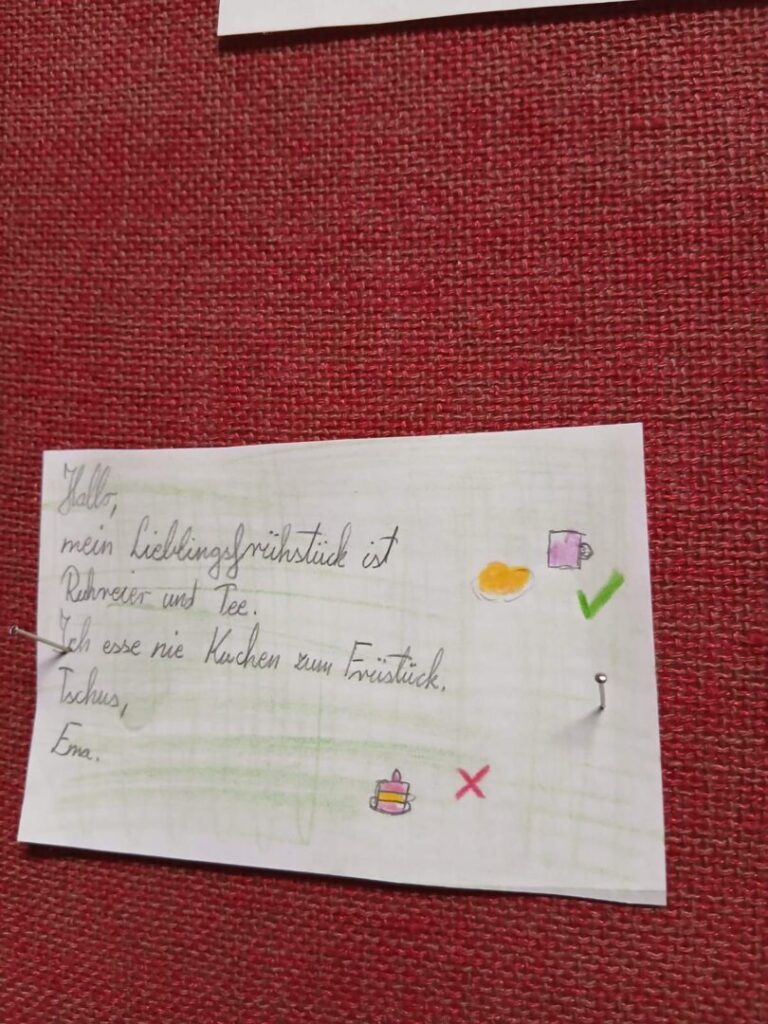 Hallo,
mein Lieblingsfrühstück ist
Ruhreier und Tee.
Ich esse nie Kuchen zum Früstück.
Tschus,
Ema.